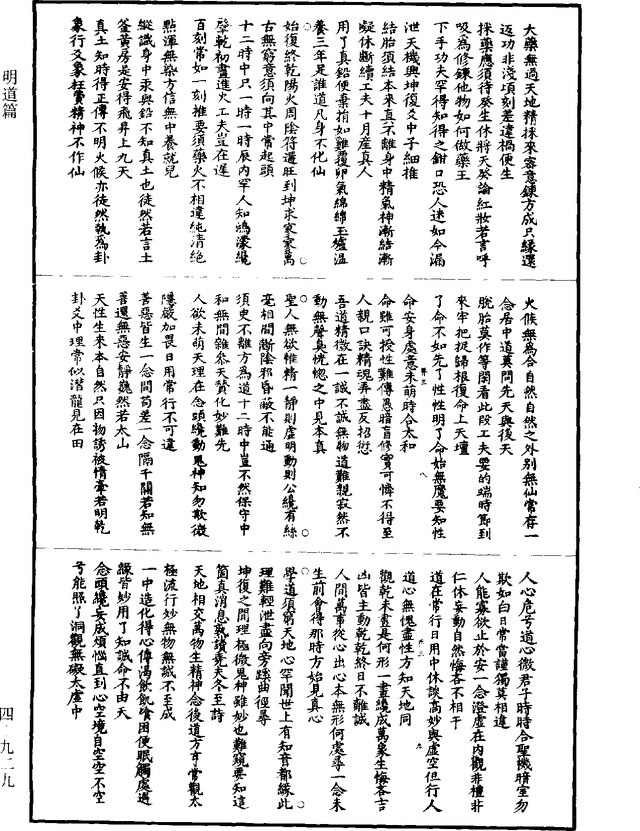 大藥無過天地精採來容意鍊方成只緣還
返功非淺頃刻差違禍便生
採藥應須待癸生休將天癸論紅妝若言呼
吸爲修鍊他物如何做藥王
下手功夫罕得知得之鉗口恐人迷如今漏
泄天機與坤復爻中子細推
結胎須結本來真不離身中精氣神漸結漸
凝休斷續工夫十月產真人
用了真鉛便棄捐如雞覆卵氣綿綿玉爐溫
養三年足誰道凡身不化仙
○
始復終乾陽火周陰符遇旺到坤求寥寥萬
古無窮意須向其中常起頭
十二時中只一時一時辰內罕人知鴻濛纔
肇乾初畫進火工夫豈在遲
百刻常如一刻推要須藥火不相違純清絕
點渾無染方信無中養就兒
縱識身中汞與鉛不知真土也徒然若言土
釜黃房是安得飛昇上九天
真土知時得正傳不明火候亦徒然執爲卦
象行爻象枉費精神不作仙
火候無爲合自然自然之外別無仙常存一
念居中道莫問先天與後天
脫胎莫作等閑看此段工夫要的端時節到
來牢把捉歸根復命上天壇
了命不如先了性性明了命始無魔要知性
命安身處意未萌時合太和
命雖可授性難傳愚暗盲修實可憐不得至
人親口訣精魂弄盡反招愆
吾道精微在一誠不誠無物道難親寂然不
動無聲臭恍惚之中見本真
○
聖人無欲惟精一靜則虛明動則公纔有絲
毫相間斷陰邪昏蔽不能通
須史不離方爲道十二時中豈不然保守中
和無間雜參天贊化妙難先
人欲未萌天理在念頭纔動鬼神知勿欺微
隱嚴加畏日用常行不可違
善惡皆生一念間苟差一念隔千關若知無
善還無惡安靜巍然若太山
天性生來本自然只因物誘被情牽若明乾
卦爻中理常似潛龍見在田
人心危兮道心微君子時時合聖機暗室勿
欺如白日常當謹獨莫相違
人能寡欲止於安一念澄虛在內觀非禮非
仁休妄動自然悔吝不相干
道在常行日用中休談高妙與虛空但行人
道心無愧盡性方知天地同
觀乾未畫是何形一畫纔成萬象生悔吝吉
凶皆主動乾乾終日不離誠
人間萬事從心出心本無形何處尋一念未
生前會得那時方始見真心
○
學道須窮天地心罕聞世上有知音都緣此
理難輕泄盡向旁蹊曲徑尋
坤復之間理極微鬼神雖妙也難窺要知這
箇真消息熟讀堯夫冬至詩
天地相交萬物生精神念後道方亨常觀太
極流行妙無物無誠不至成
一中造化得心傳渴飲飢飡困便眠觸處過
緣皆妙用了知誠命不由天
念頭纔妄成煩惱直到心空境自空空不空
兮能照了洞觀無礙太虛中
明道篇
四 九二九